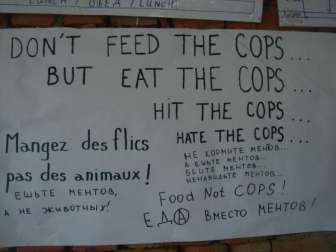 LUNCH / OBEA / LUNCH
DON'T FEED THE COPS...
BUT EAT THE COPS...
HIT THE COPS...
HATE THE COPS...
Mangez des flics
pas des animaux!
ЕШЬТЕ МЕНТОВ,
А НЕ ЖИВОТНЫХ!
НЕ КОРМИТЕ МЕНТОВ...
А ЕШЬТЕ МЕНТОВ...
БЕЙТЕ МЕНТОВ...
НЕНАВИДЬТЕ МЕНТОВ...
Food Not COPS!
ЕДА ВМЕСТО МЕНТОВ!